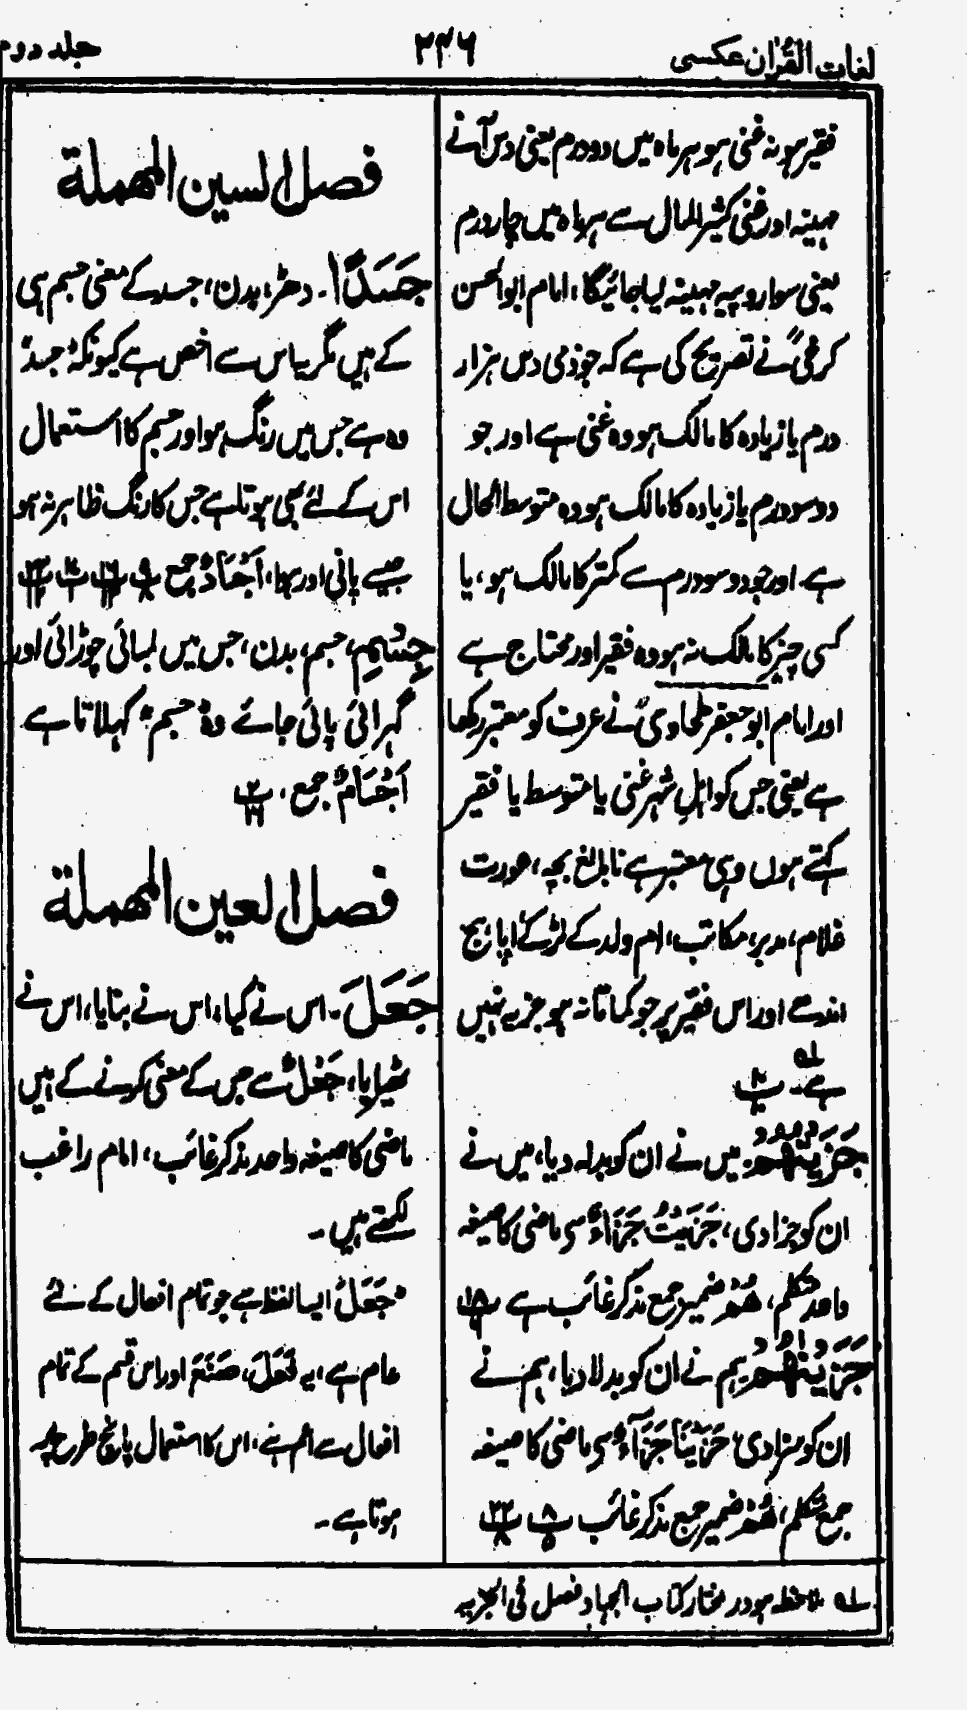 لغات القرآن عکسی
۲۴۶
جلد دوم
فقیر ہو نہ غنی ہو ہر ماہ میں دو درم یعنی دس آنے
مہینہ اور غنی کثیر المال سے ہر ماہ میں چار درم
یعنی سوا روپیہ مہینہ لیا جائیگا، امام ابو الحسن
کرخیؒ نے تصریح کی ہے کہ جو ذمی دس ہزار
درم یا زیادہ کا مالک ہو وہ غنی ہے اور جو
دو سو درم یا زیادہ کا مالک ہو وہ متوسط الحال
ہے۔ اور جو دو سو درم سے کمتر کا مالک ہو، یا
کسی چیز کا مالک نہ ہو وہ فقیر اور محتاج ہے
اور امام ابو جعفر طحاویؒ نے عرف کو معتبر رکھا
ہے یعنی جس کو اہلِ شہر غنی یا متوسط یا فقیر
کہتے ہوں وہی معتبر ہے نابالغ بچہ، عورت
غلام، مدبر، مکاتب، ام ولد کے لڑکے، اپاہج
اندھے اور اس فقیر پر جو کماتا نہ ہو جزیہ نہیں
ہے۔ پ
جَزَیْتُهُمْ میں نے ان کو بدلہ دیا، میں نے
ان کو جزا دی، جَزَیْتُ جَزَاءٌ سے ماضی کا صیغہ
واحد متکلم، هُمْ ضمیر جمع مذکر غائب ہے
جَزَیْنٰهُمْ ہم نے ان کو بدلا دیا، ہم نے
ان کو سزا دی، جَزَیْنَا جَزَآءٌ سے ماضی کا صیغہ
جمع متکلم، هُمْ ضمیر جمع مذکر غائب
فصل السین المهملة
جَسَدًا۔ دھڑ، بدن، جسد کے معنی جسم ہی
کے ہیں مگر یہ اس سے اخص ہے کیونکہ "جسد"
وہ ہے جس میں رنگ ہو اور جسم کا استعمال
اس کے لئے بھی ہوتا ہے جس کا رنگ ظاہر نہ ہو
جیسے پانی اور ہوا، اَجْسَادٌ جمع
جِسْمِ، جسم، بدن، جس میں لمبائی چوڑائی اور
گہرائی پائی جائے وہ "جسم" کہلاتا ہے
اَجْسَامٌ جمع،
فصل العین المهملة
جَعَلَ۔ اس نے کیا، اس نے بنایا، اس نے
ٹھیرایا، جَعْلٌ سے جس کے معنی کرنے کے ہیں
ماضی کا صیغہ واحد مذکر غائب، امام راغب
لکھتے ہیں۔
"جَعَلَ" ایسا لفظ ہے جو تمام افعال کے لئے
عام ہے، یہ فَعَلَ، صَنَعَ اور اس قسم کے تمام
افعال سے اعم ہے، اس کا استعمال پانچ طرح پر
ہوتا ہے۔
لہ ملاحظہ ہو در مختار کتاب الجہاد فصل فی الجزیہ